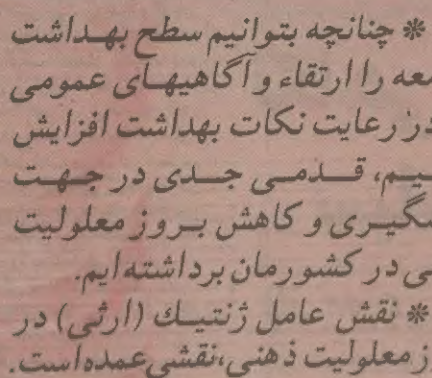 * چنانچه بتوانیم سطح بهداشت
معه را ارتقاء و آگاهیهای عمومی
در رعایت نکات بهداشت افزایش
یم، قدمی جدی در جهت
گیری و کاهش بروز معلولیت
ی در کشورمان برداشته‌ایم.
* نقش عامل ژنتیك (ارثی) در
ز معلولیت ذهنی، نقشی عمده‌است.